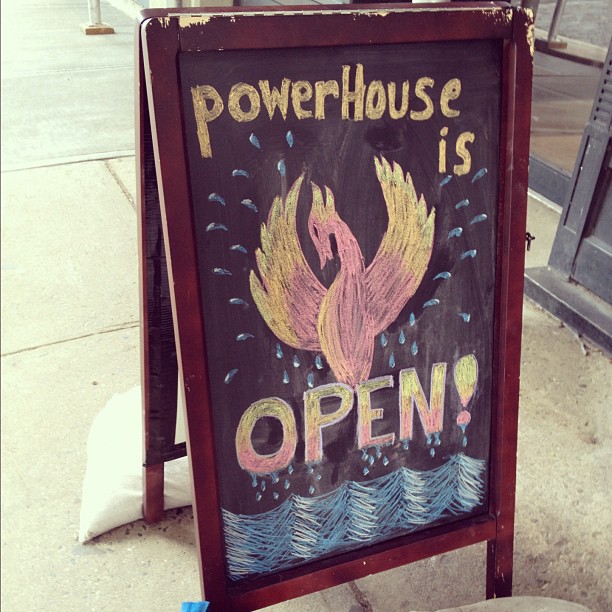 powerHouse
is
OPEN!